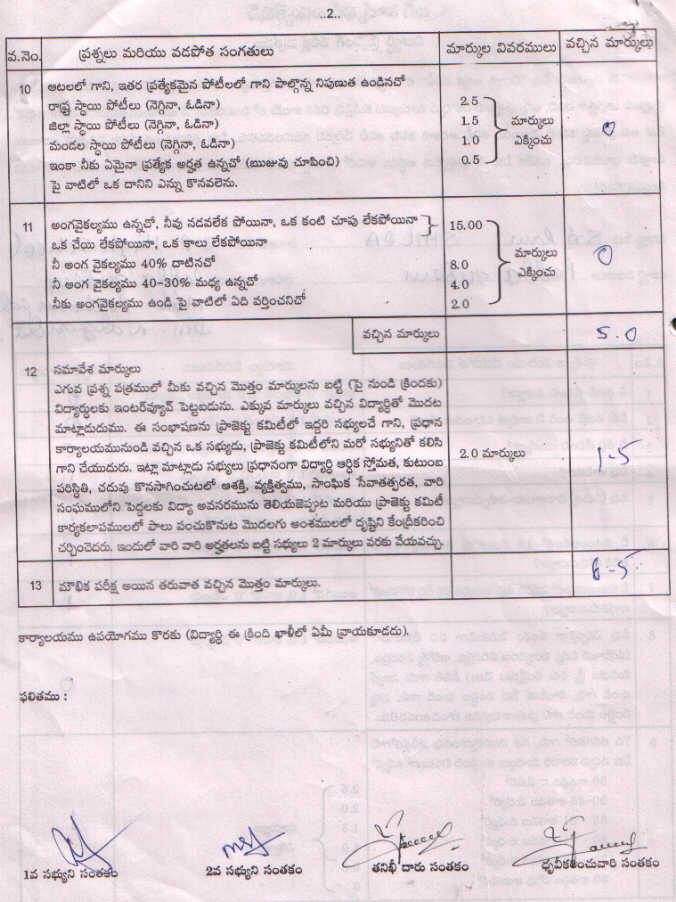 ..2..
వ.నెం. ప్రశ్నలు మరియు వడపోత సంగతులు మార్కుల వివరములు వచ్చిన మార్కులు
10 ఆటలలో గాని, ఇతర ప్రత్యేకమైన పోటీలలో గాని పాల్గొన్న నిపుణత ఉండినచో
రాష్ట్ర స్థాయి పోటీలు (నెగ్గినా, ఓడినా) 2.5
జిల్లా స్థాయి పోటీలు (నెగ్గినా, ఓడినా) 1.5 మార్కులు 0
మండల స్థాయి పోటీలు (నెగ్గినా, ఓడినా) 1.0 ఎక్కించు
ఇంకా నీకు ఏమైనా ప్రత్యేక అర్హత ఉన్నచో (ఋజువు చూపించి) 0.5
పై వాటిలో ఒక దానిని ఎన్ను కొనవలెను.
11 అంగవైకల్యము ఉన్నచో, నీవు నడవలేక పోయినా, ఒక కంటి చూపు లేకపోయినా 15.00
ఒక చేయి లేకపోయినా, ఒక కాలు లేకపోయినా
నీ అంగ వైకల్యము 40% దాటినచో 8.0 మార్కులు 0
నీ అంగ వైకల్యము 40-30% మధ్య ఉన్నచో 4.0 ఎక్కించు
నీకు అంగవైకల్యము ఉండి పై వాటిలో ఏది వర్తించనిచో 2.0
వచ్చిన మార్కులు 5.0
12 సమావేశ మార్కులు
ఎగువ ప్రశ్న పత్రములో మీకు వచ్చిన మొత్తం మార్కులను బట్టి (పై నుండి క్రిందకు)
విద్యార్థులకు ఇంటర్‌వ్యూవ్ పెట్టబడును. ఎక్కువ మార్కులు వచ్చిన విద్యార్థితో మొదట
మాట్లాడుదుము. ఈ సంభాషణను ప్రాజెక్టు కమిటీలో ఇద్దరి సభ్యులచే గాని, ప్రధాన
కార్యాలయమునుండి వచ్చిన ఒక సభ్యుడు, ప్రాజెక్టు కమిటీలోని మరో సభ్యునితో కలిసి
గాని చేయుదురు. ఇట్లా మాట్లాడు సభ్యులు ప్రధానంగా విద్యార్థి ఆర్థిక స్తోమత, కుటుంబ 2.0 మార్కులు 1-5
పరిస్థితి, చదువు కొనసాగించుటలో ఆశక్తి, వ్యక్తిత్వము, సాంఘిక సేవాతత్పరత, వారి
సంఘములోని పెద్దలకు విద్యా అవసరమును తెలియజెప్పుట మరియు ప్రాజెక్టు కమిటీ
కార్యకలాపములలో పాలు పంచుకొనుట మొదలగు అంశములలో దృష్టిని కేంద్రీకరించి
చర్చించెదరు. ఇందులో వారి వారి అర్హతలను బట్టి సభ్యులు 2 మార్కులు వరకు వేయవచ్చు.
13 మౌఖిక పరీక్ష అయిన తరువాత వచ్చిన మొత్తం మార్కులు. 6-5
కార్యాలయము ఉపయోగము కొరకు (విద్యార్థి ఈ క్రింది ఖాళీలో ఏమీ వ్రాయకూడదు).
ఫలితము :
1వ సభ్యుని సంతకం 2వ సభ్యుని సంతకం తనిఖీ దారు సంతకం ధృవీకరించువారి సంతకం